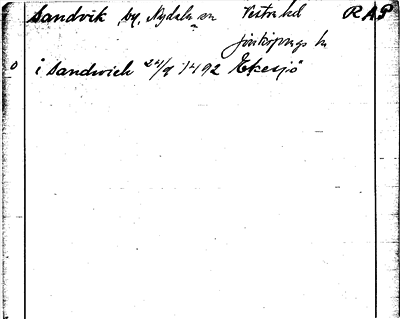 Sandvik by, Nydala sn Västra hd RAP
Jönköpings ln
o i Sandwich 24/8 1492 Ekesjö